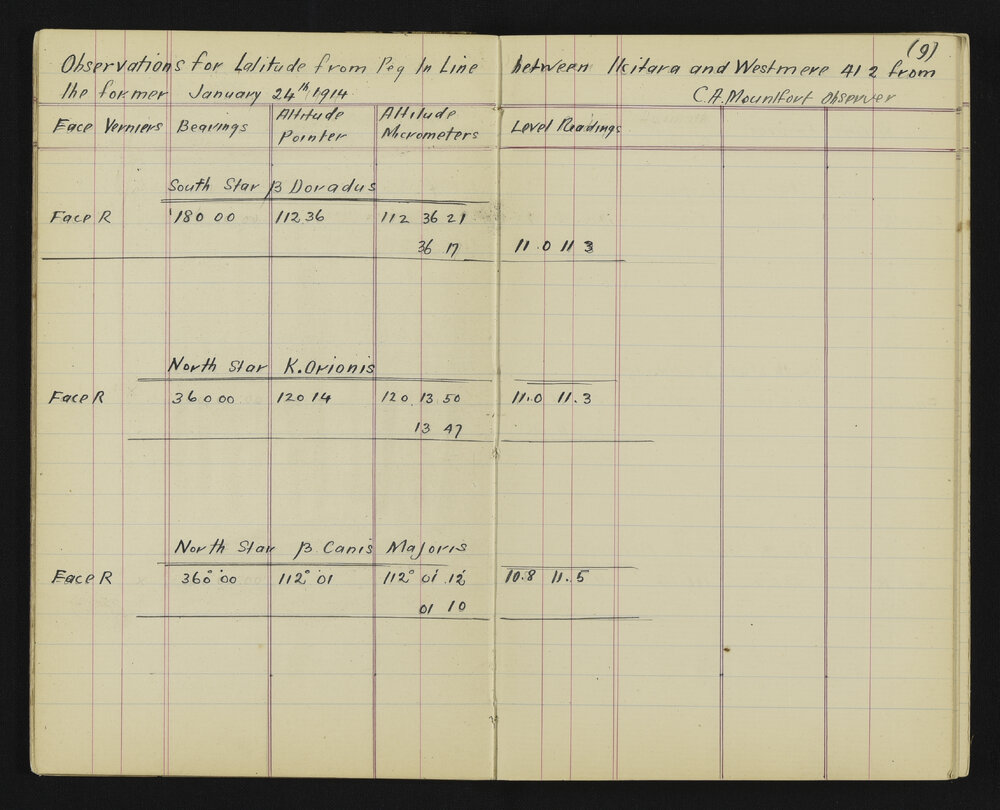 (9)
Observations for Latitude from Peg In Line between Ikitara and Westmere 41 2 from
the former January 24th 1914. C.A. Mountfort Observer
Face Verniers Bearings Altitude Pointer Altitude Micrometers Level Readings
South Star β Doradus
Face R 180 00 112 36 112 36 21
36 17 11.0 11 3
North Star K. Orionis
Face R 360 00 120 14 120 13 50 11.0 11.3
13 47
North Star β. Canis Majoris
Face R 360° 00' 112° 01' 112° 01' 12" 10.8 11.5
01 10